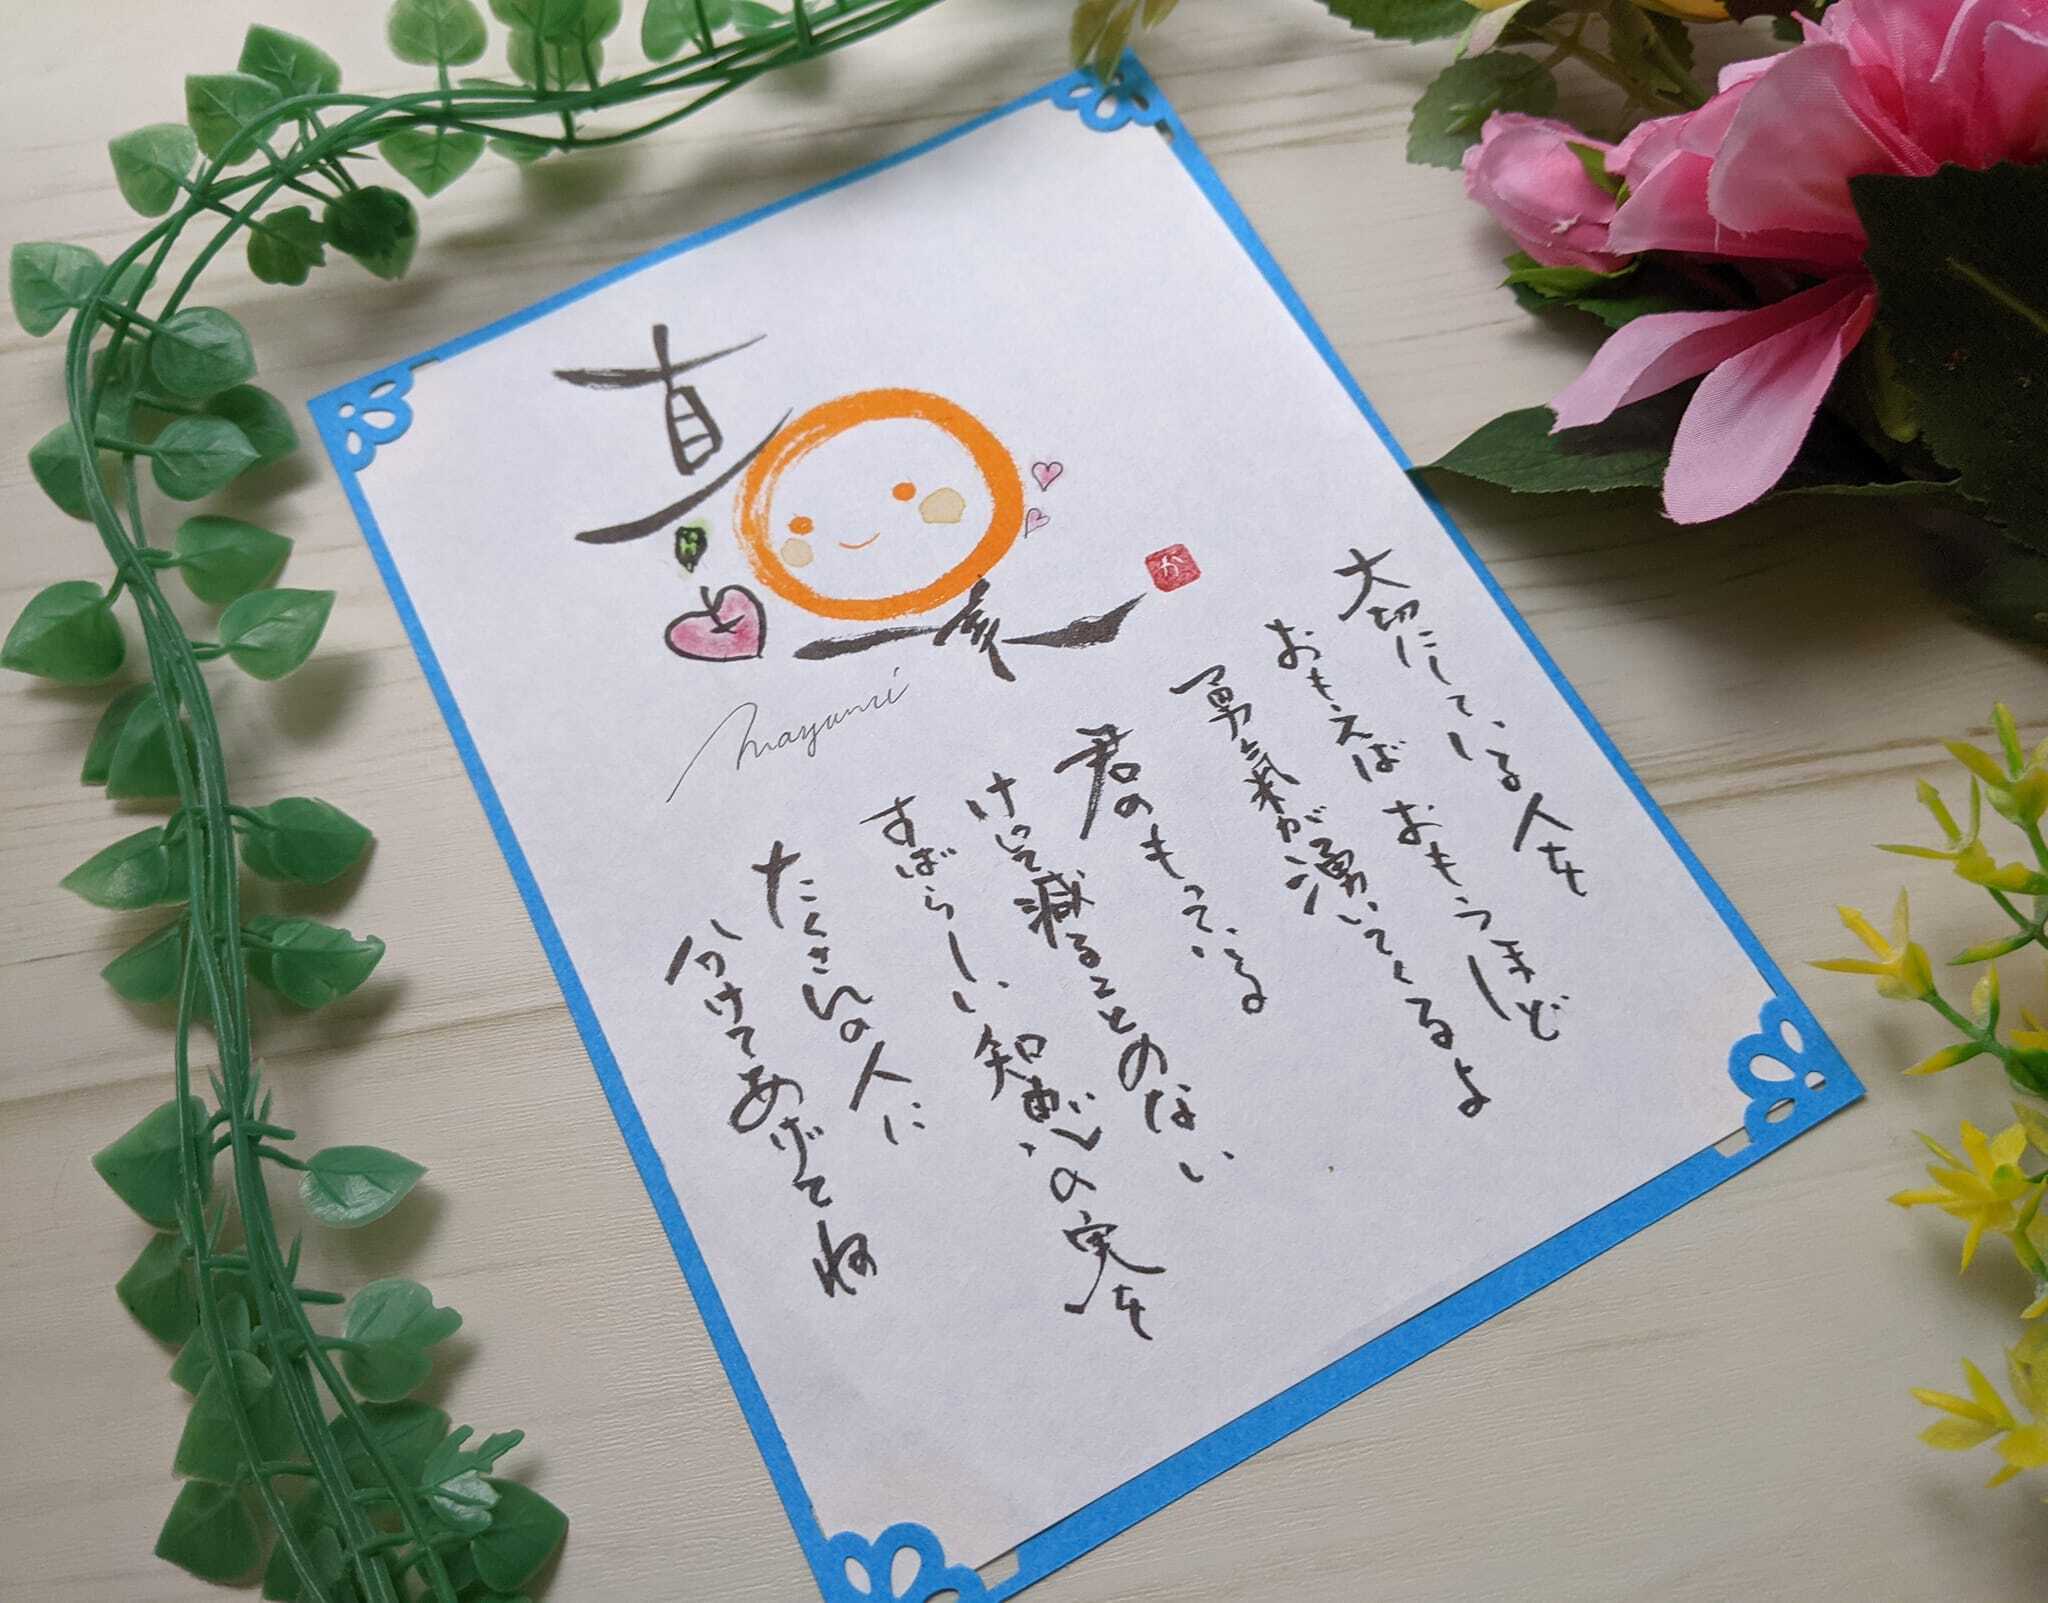 真
か
mayumi
大切にしている人を
おもえば おもうほど
勇氣が湧いてくるよ
君のもっている
けっして減ることのない
すばらしい知恵の実を
たくさんの人に
分けてあげてね